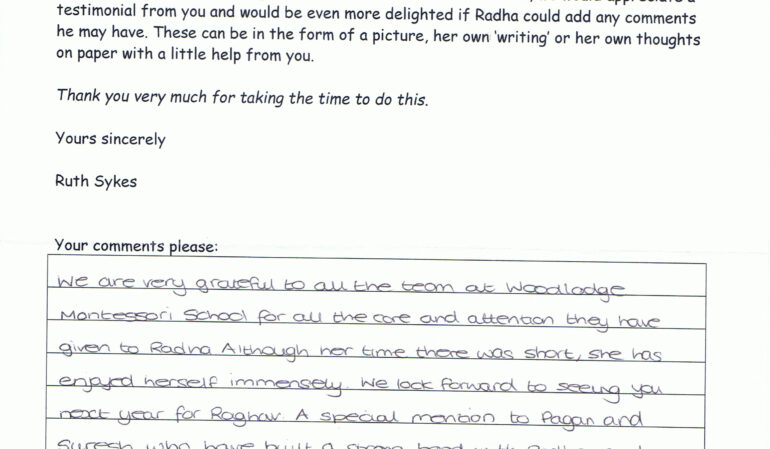 testimonial from you and would be even more delighted if Radha could add any comments
he may have. These can be in the form of a picture, her own 'writing' or her own thoughts
on paper with a little help from you.
Thank you very much for taking the time to do this.
Yours sincerely
Ruth Sykes
Your comments please:
We are very grateful to all the team at Woodlodge
Montessori School for all the care and attention they have
given to Radha Although her time there was short, she has
enjoyed herself immensely. We look forward to seeing you
next year for Raghav. A special mention to Pagan and
Suresh who have built a strong bond with